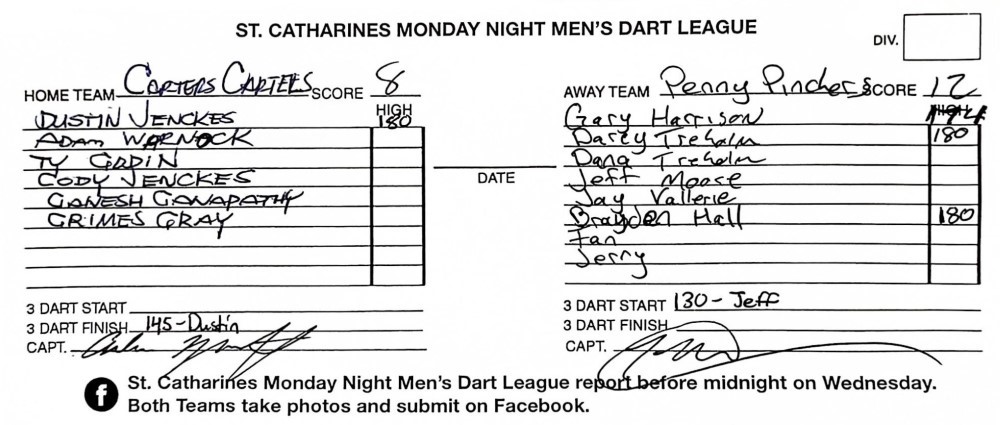 ST. CATHARINES MONDAY NIGHT MEN'S DART LEAGUE
DIV.
HOME TEAM CARTERS CARTELS SCORE 8
HIGH
DUSTIN JENCKES 180
ADAM WARNOCK
TY GODIN
CODY JENCKES
GANESH GANAPATHY
GRIMES GRAY
3 DART START
3 DART FINISH 145-Dustin
CAPT.
DATE
AWAY TEAM Penny Pinchers SCORE 12
HIGH
Gary Harrison 174
Darcy Treholm 180
Dana Treholm
Jeff Moose
Jay Vallerie
Brayden Hall 180
Ian
Jerry
3 DART START 130-Jeff
3 DART FINISH
CAPT.
f St. Catharines Monday Night Men's Dart League report before midnight on Wednesday.
Both Teams take photos and submit on Facebook.